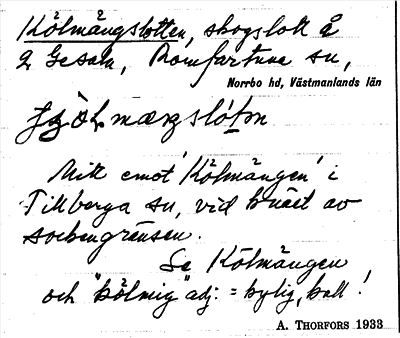 Kölmångslotten, skogslott å
2 Gesala, Romfartuna sn,
Norrbo hd, Västmanlands län
Mitt emot 'Kölmången' i
Tillberga sn, vid knäet av
sockengränsen.
Se Kölmången
och "kölmig" adj. = kylig, kall!
A. THORFORS 1933